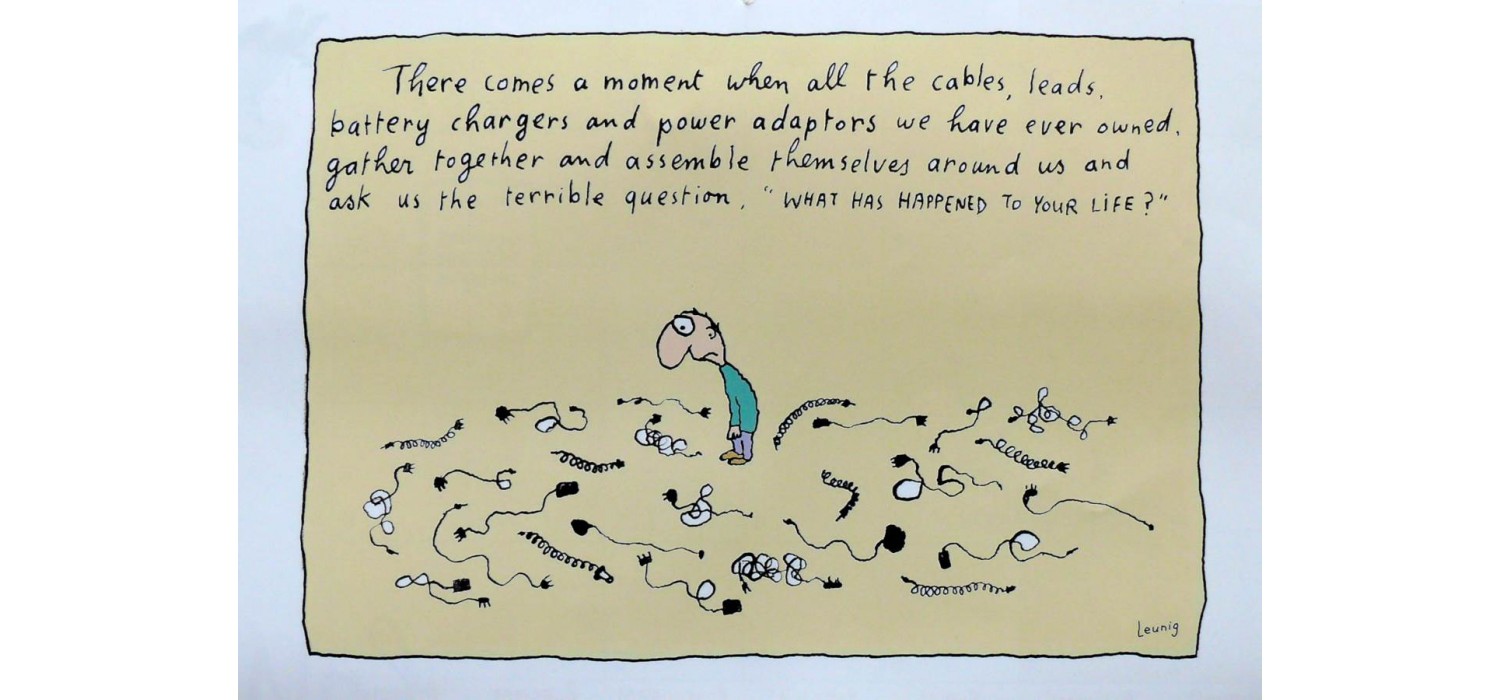 There comes a moment when all the cables, leads,
battery chargers and power adaptors we have ever owned,
gather together and assemble themselves around us and
ask us the terrible question, "WHAT HAS HAPPENED TO YOUR LIFE?"
Leunig